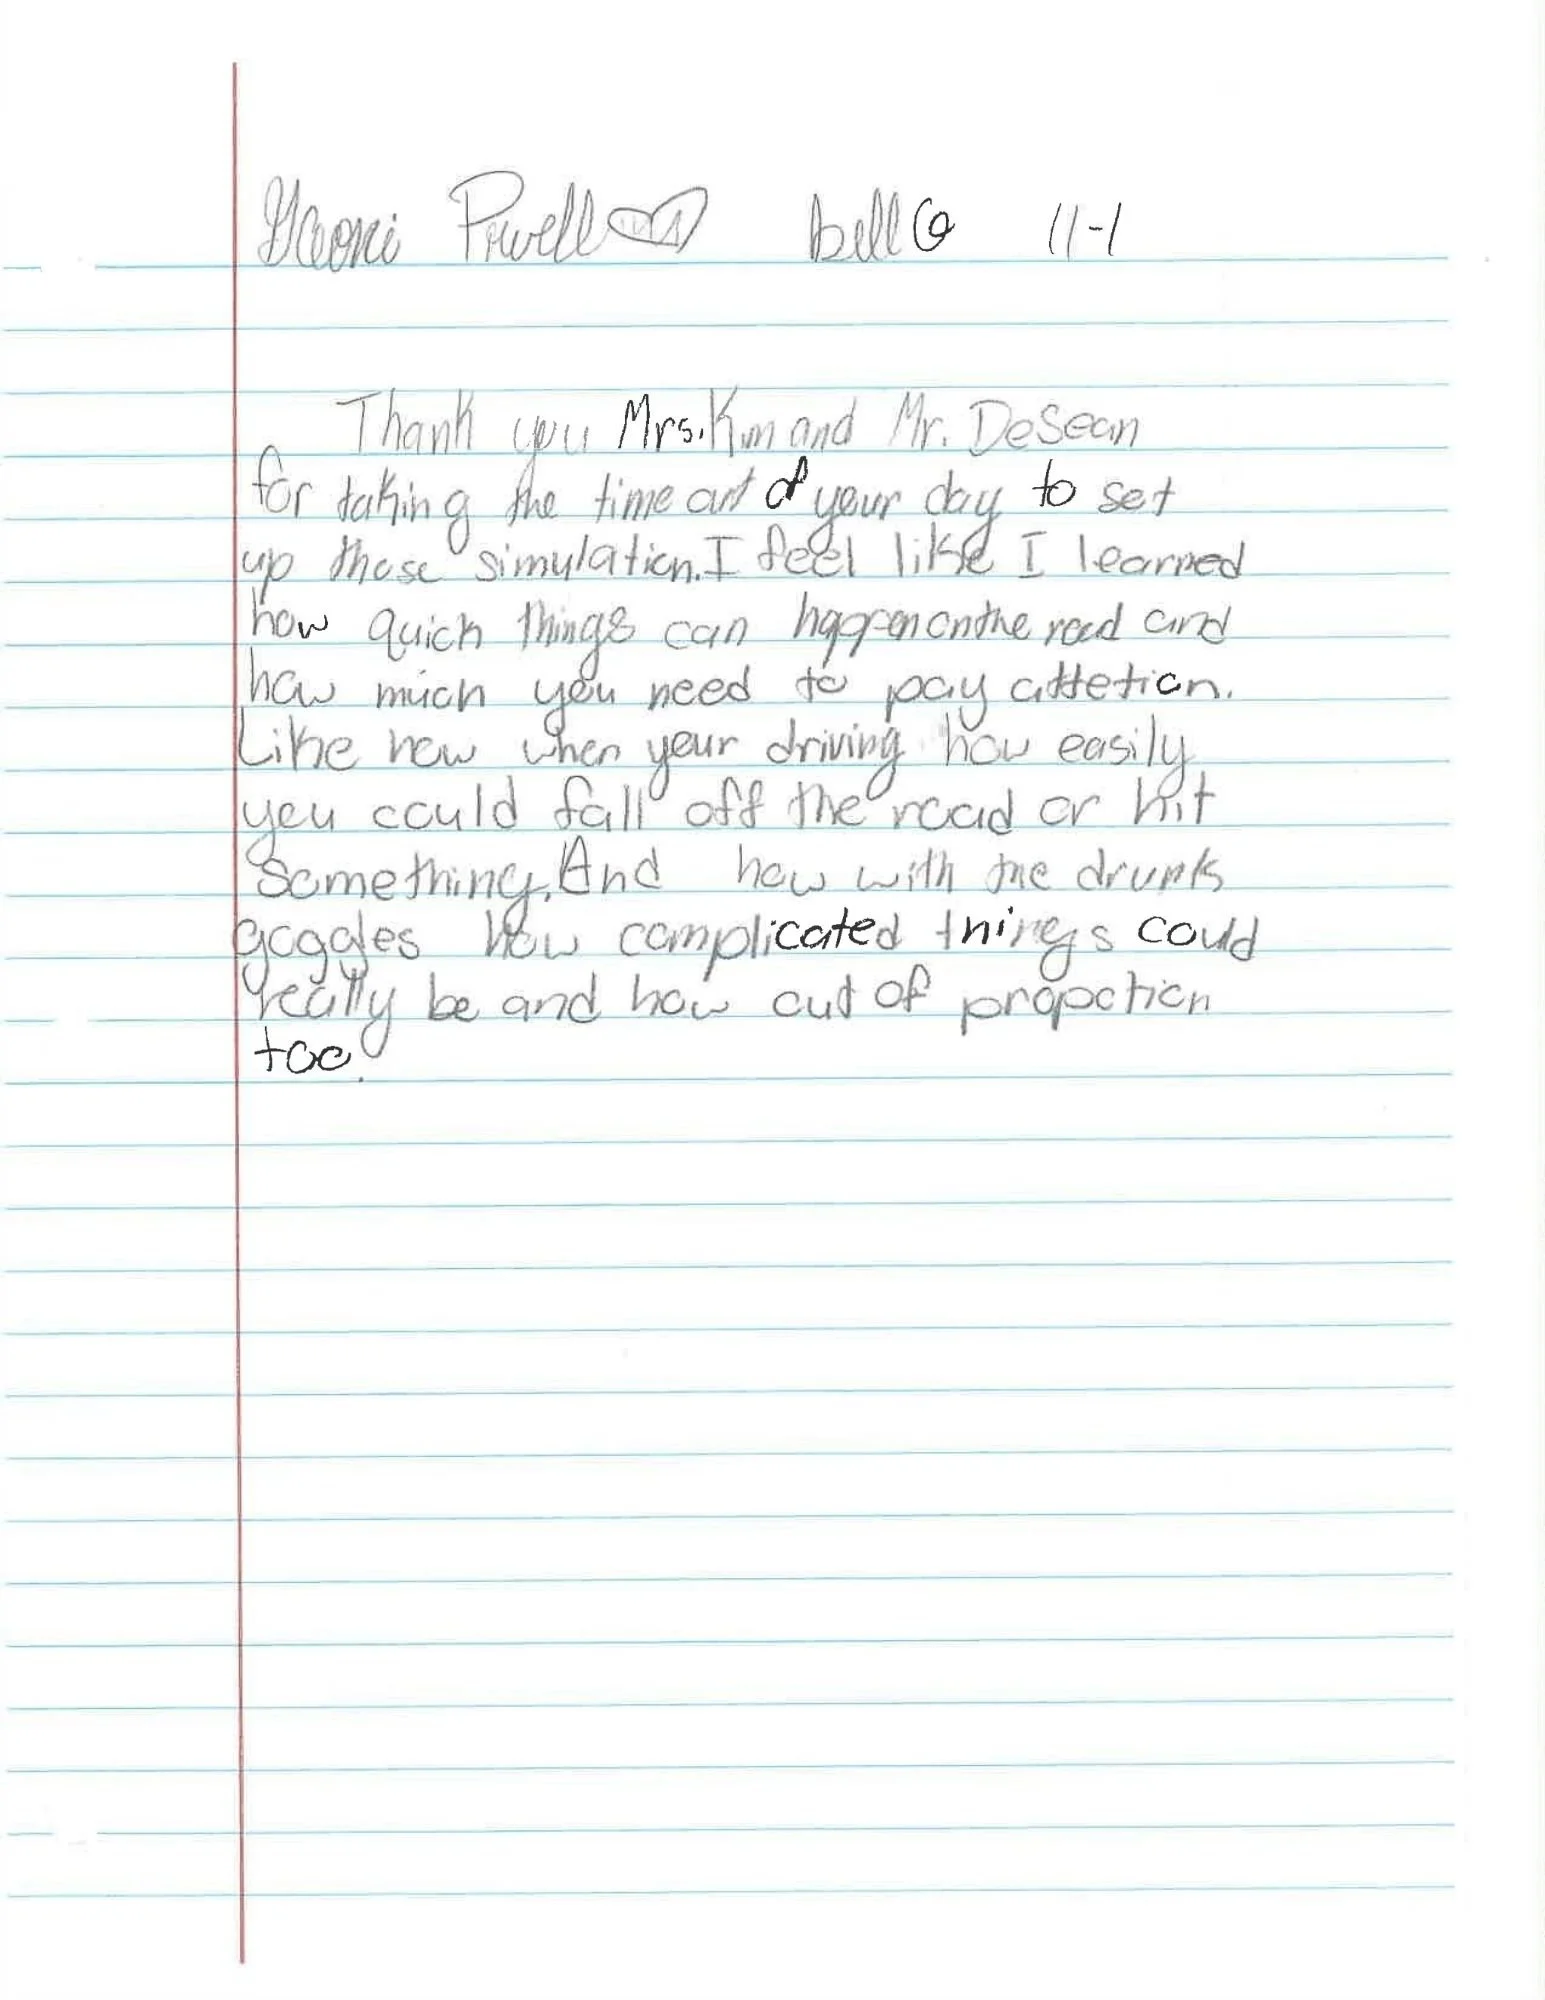 Powell bell 6 11-1
Thank you Mrs. Kim and Mr. DeSean
for taking the time out of your day to set
up those simulation. I feel like I learned
how quick things can happen on the road and
how much you need to pay attetion.
Like how when your driving how easily
you could fall off the road or hit
something. And how with the drunk
goggles how complicated things could
really be and how out of propotion
too.